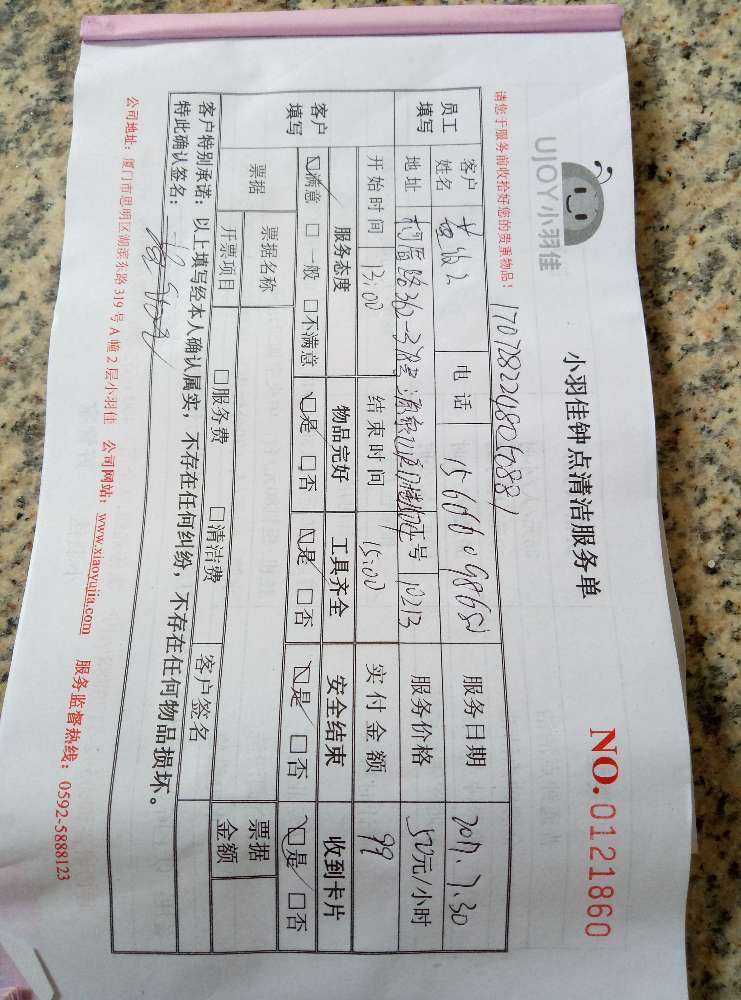 UJOY小羽佳
小羽佳钟点清洁服务单
NO.0121860
请您于服务前收拾好您的贵重物品!
员工填写 客户姓名 电话 服务日期 2017.7.30
地址 工号 10213 服务价格 50元/小时
开始时间 13:00 结束时间 15:00 实付金额 99
客户填写 服务态度 物品完好 工具齐全 安全结束 收到卡片
☑满意 □一般 □不满意 ☑是 □否 ☑是 □否 ☑是 □否 ☑是 □否
票据 票据名称 票据金额
开票项目 □服务费 □清洁费 客户签名
客户特别承诺：以上填写经本人确认属实，不存在任何纠纷，不存在任何物品损坏。
特此确认签名：
公司地址：厦门市思明区湖滨东路319号A幢2层小羽佳 公司网站：www.xiaoyujia.com 服务监督热线：0592-5888123